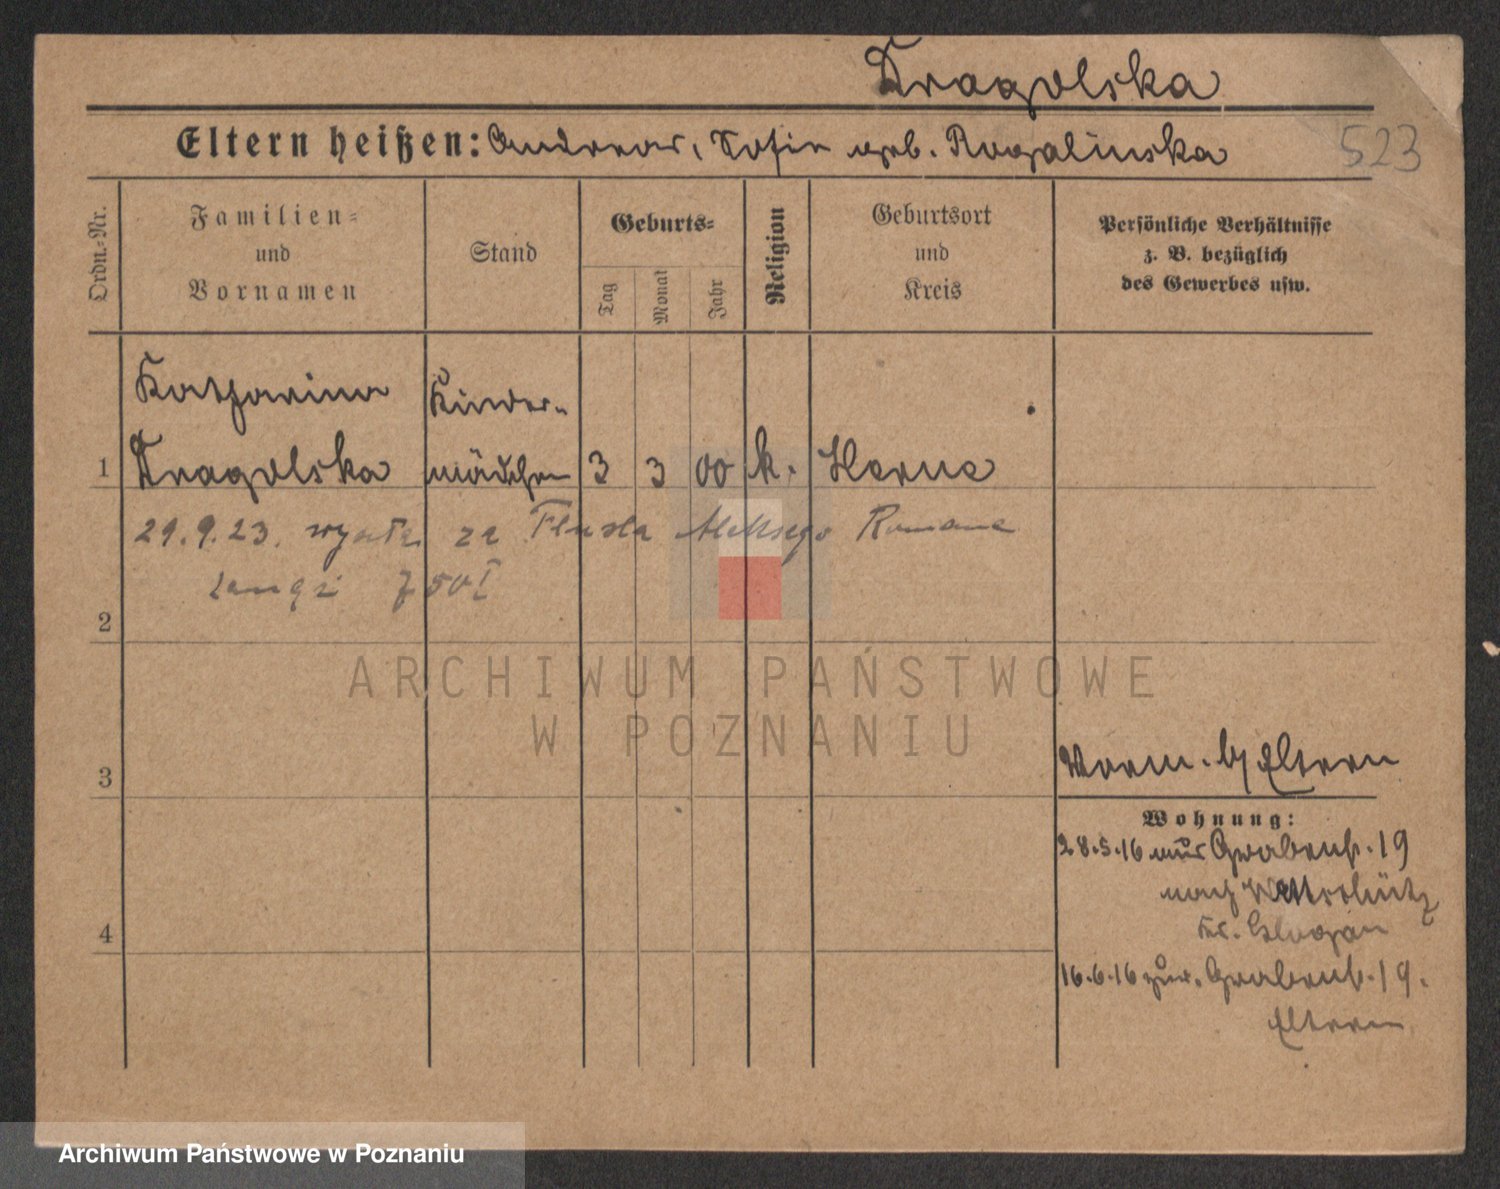 Dragolska
Eltern heißen: Andreas, Sofie geb. Rogalinska
523
Ordn.=Nr.
Familien=
und
Vornamen
Stand
Geburts=
Tag
Monat
Jahr
Religion
Geburtsort
und
Kreis
Persönliche Verhältnisse
z. B. bezüglich
des Gewerbes usw.
Katharina Kinder-
1 Dragolska mädchen 3 3 00 k. Herne
29.9.23. wyszła za Aleksego Romana
2
3
4
Vorm. b/ Eltern
Wohnung:
28.5.16 aus Grabenstr. 19
nach
Kr. Glogau
16.6.16 zur. Grabenstr. 19.
Eltern
ARCHIWUM PAŃSTWOWE
W POZNANIU
Archiwum Państwowe w Poznaniu